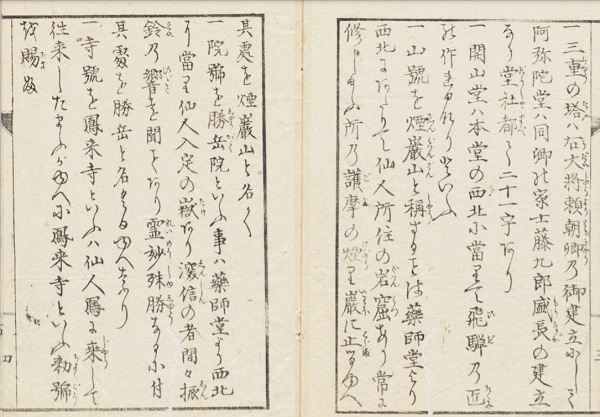 一三重の塔ハ右大将頼朝卿乃御建立にして
阿弥陀堂ハ同卿の家士藤九郎盛長の建立
なり堂社都て二十一字あり
一開山堂ハ本堂の西北に當りて飛騨乃匠
の作れるなりといふ
一山號を煙巖山と称するをは薬師堂より
西北にあたりて仙人所住の岩窟あり常に
修し給ふ所乃護摩の煙り巖に止るゆへ
其處を煙巖山と名く
一院號を勝岳院といふ事ハ薬師堂より西北
に當り仙人入定の嶽あり深信の者間々振
鈴乃響を聞くあり霊妙殊勝なるに付
其處を勝岳と名くるゆへなり
一寺號を鳳来寺といふハ仙人鳳に乗して
往来したまふがゆへに鳳来寺といふ勅號
を賜ふ